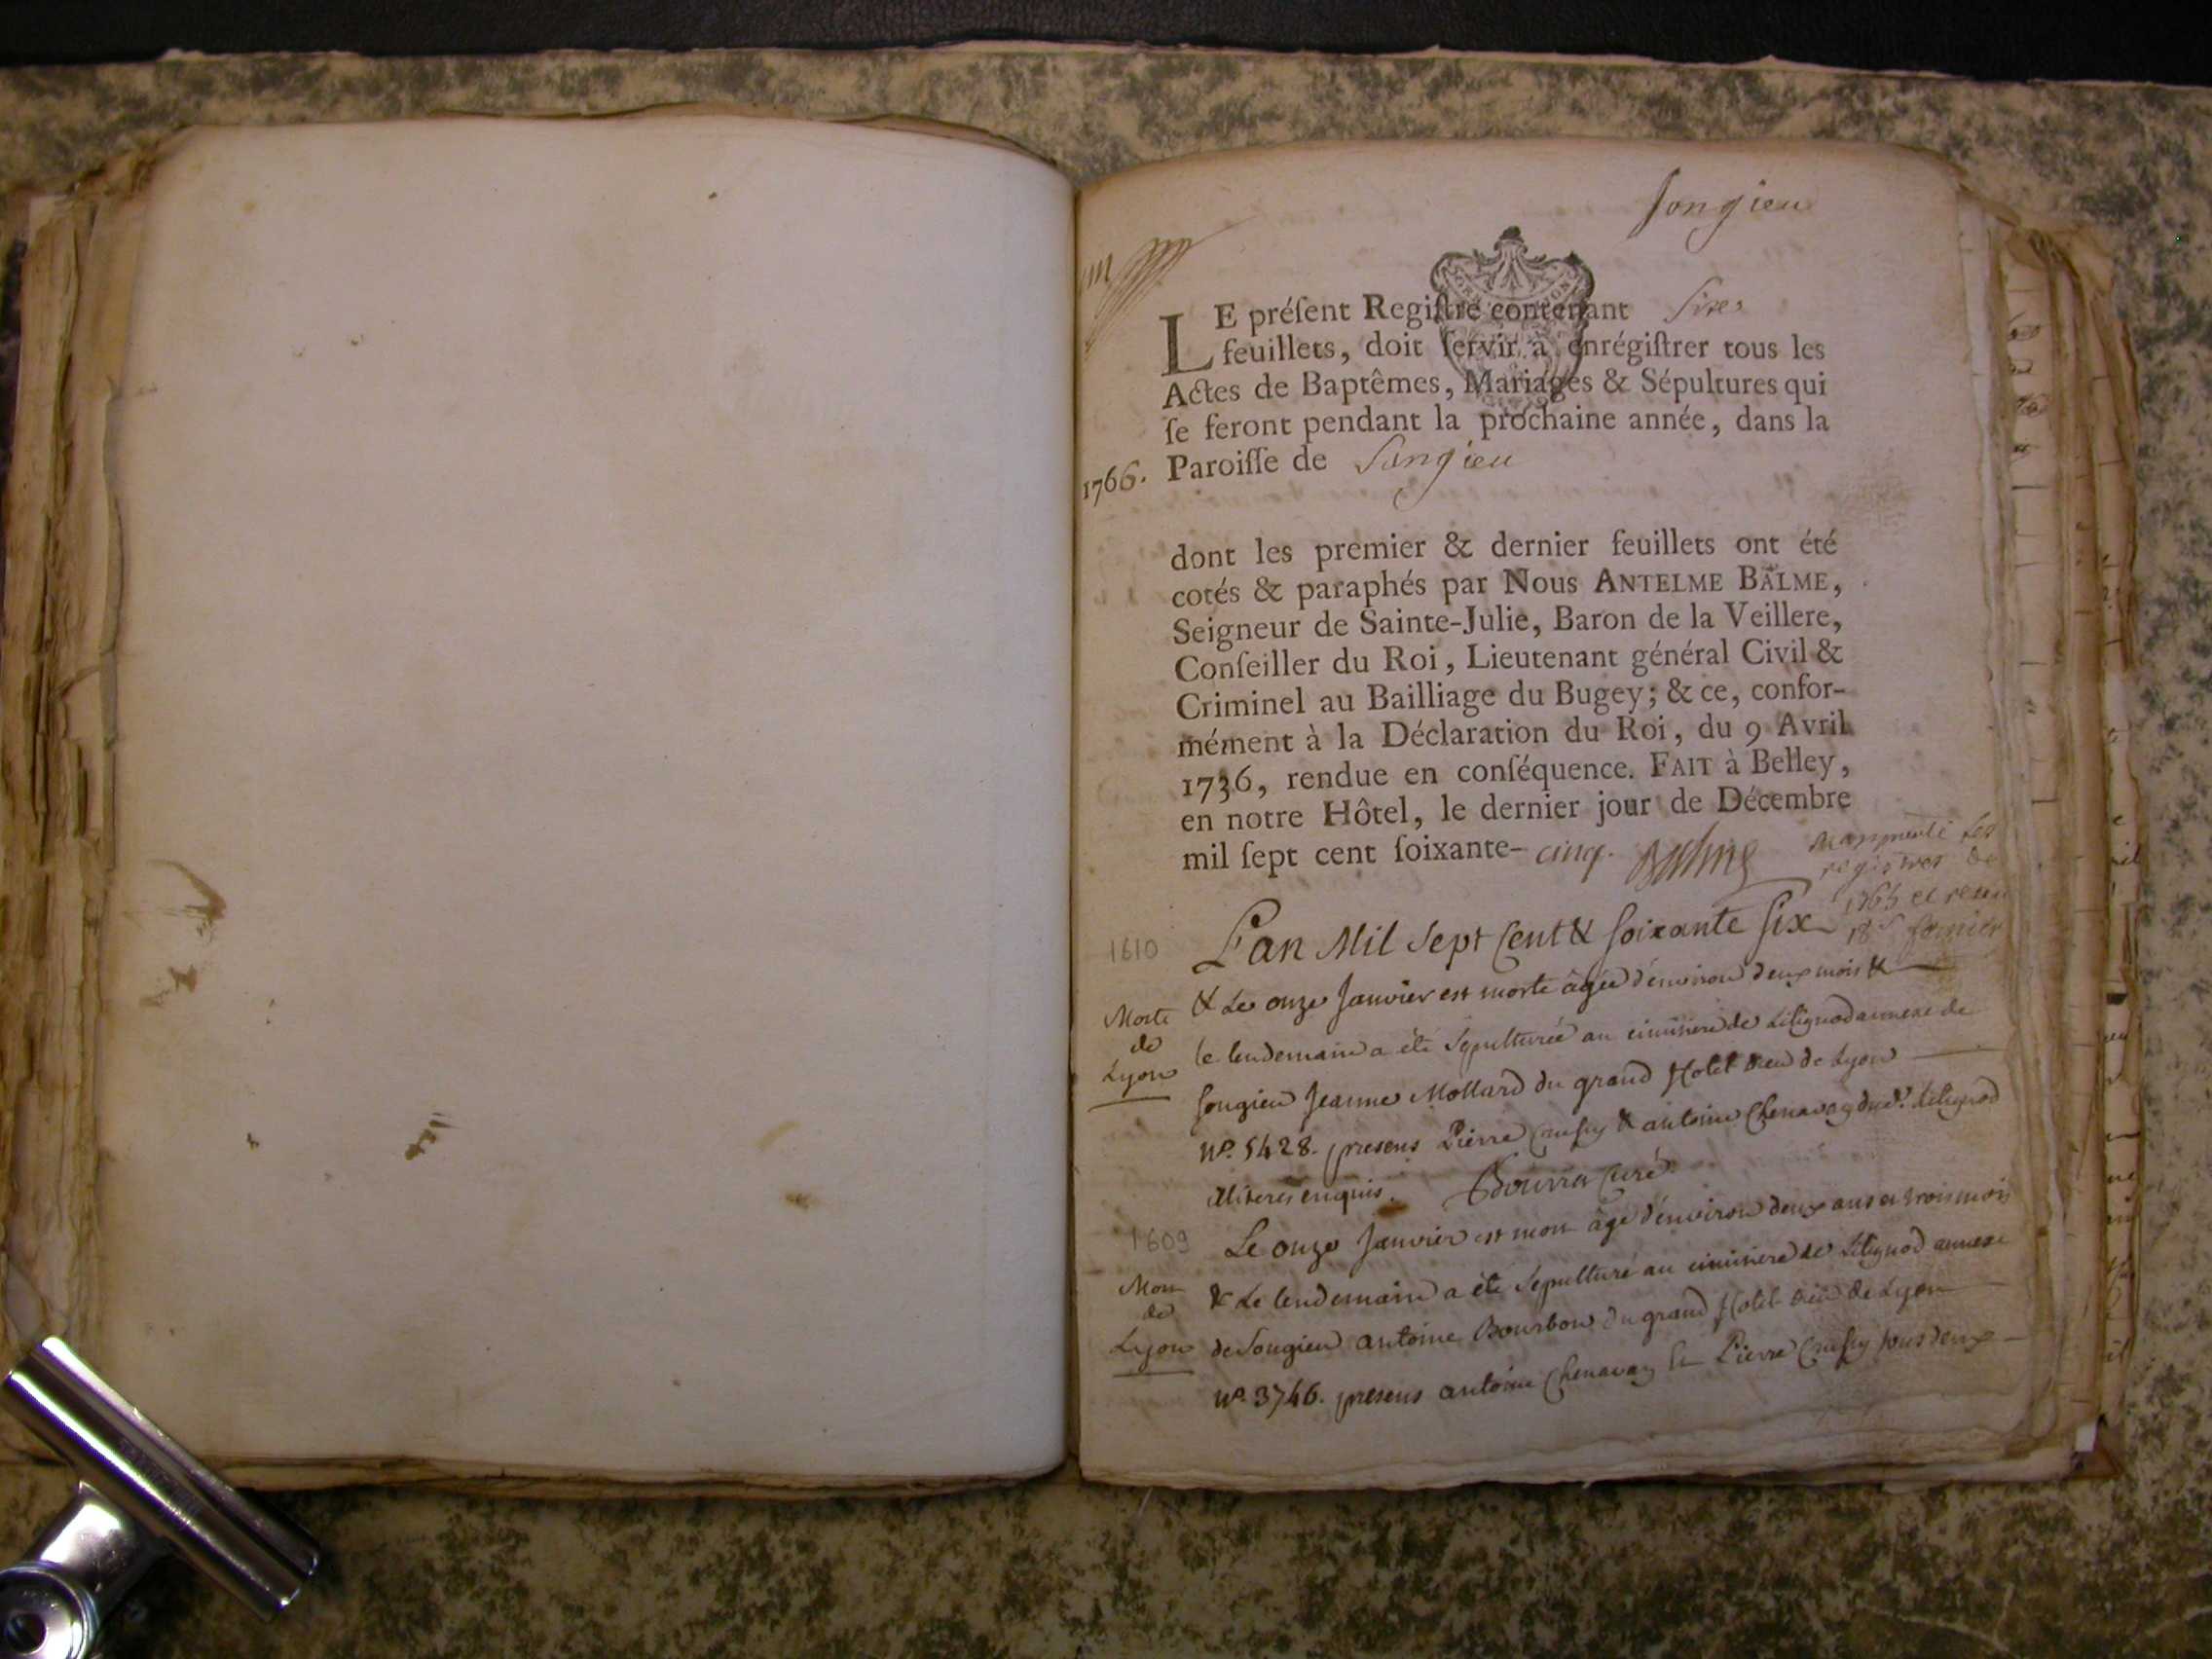 Songieu
LE préſent Regiſtre contenant Sixe
feuillets, doit ſervir à enrégiſtrer tous les
Actes de Baptêmes, Mariages & Sépultures qui
ſe feront pendant la prochaine année, dans la
1766. Paroiſſe de Songieu
dont les premier & dernier feuillets ont été
cotés & paraphés par Nous ANTELME BALME,
Seigneur de Sainte-Julie, Baron de la Veillere,
Conſeiller du Roi, Lieutenant général Civil &
Criminel au Bailliage du Bugey; & ce, confor-
mément à la Déclaration du Roi, du 9 Avril
1736, rendue en conſéquence. FAIT à Belley,
en notre Hôtel, le dernier jour de Décembre
mil ſept cent ſoixante- cinq. Balme
registres de
1765 et
18e janvier
1610 L'an Mil Sept Cent & soixante six
Morte de Lyon
& Le onze Janvier est morte âgée d'environ deux mois &
le lendemain a été sépulturée au cimitiere de Lilignod annexe de
Songieu Jeanne Mollard du grand Hotel Dieu de Lyon
N.º 5428. presens Pierre & antoine Chenavay Lilignod
illiterés enquis. Bourra Curé
1609 Le onze Janvier est mort âgé d'environ deux ans et trois mois
Mort de Lyon
& Le lendemain a été sépulturé au cimitiere de Lilignod annexe
de Songieu antoine Bourbon du grand Hotel Dieu de Lyon
N.º 3746. presens antoine Chenavay & Pierre tous deux